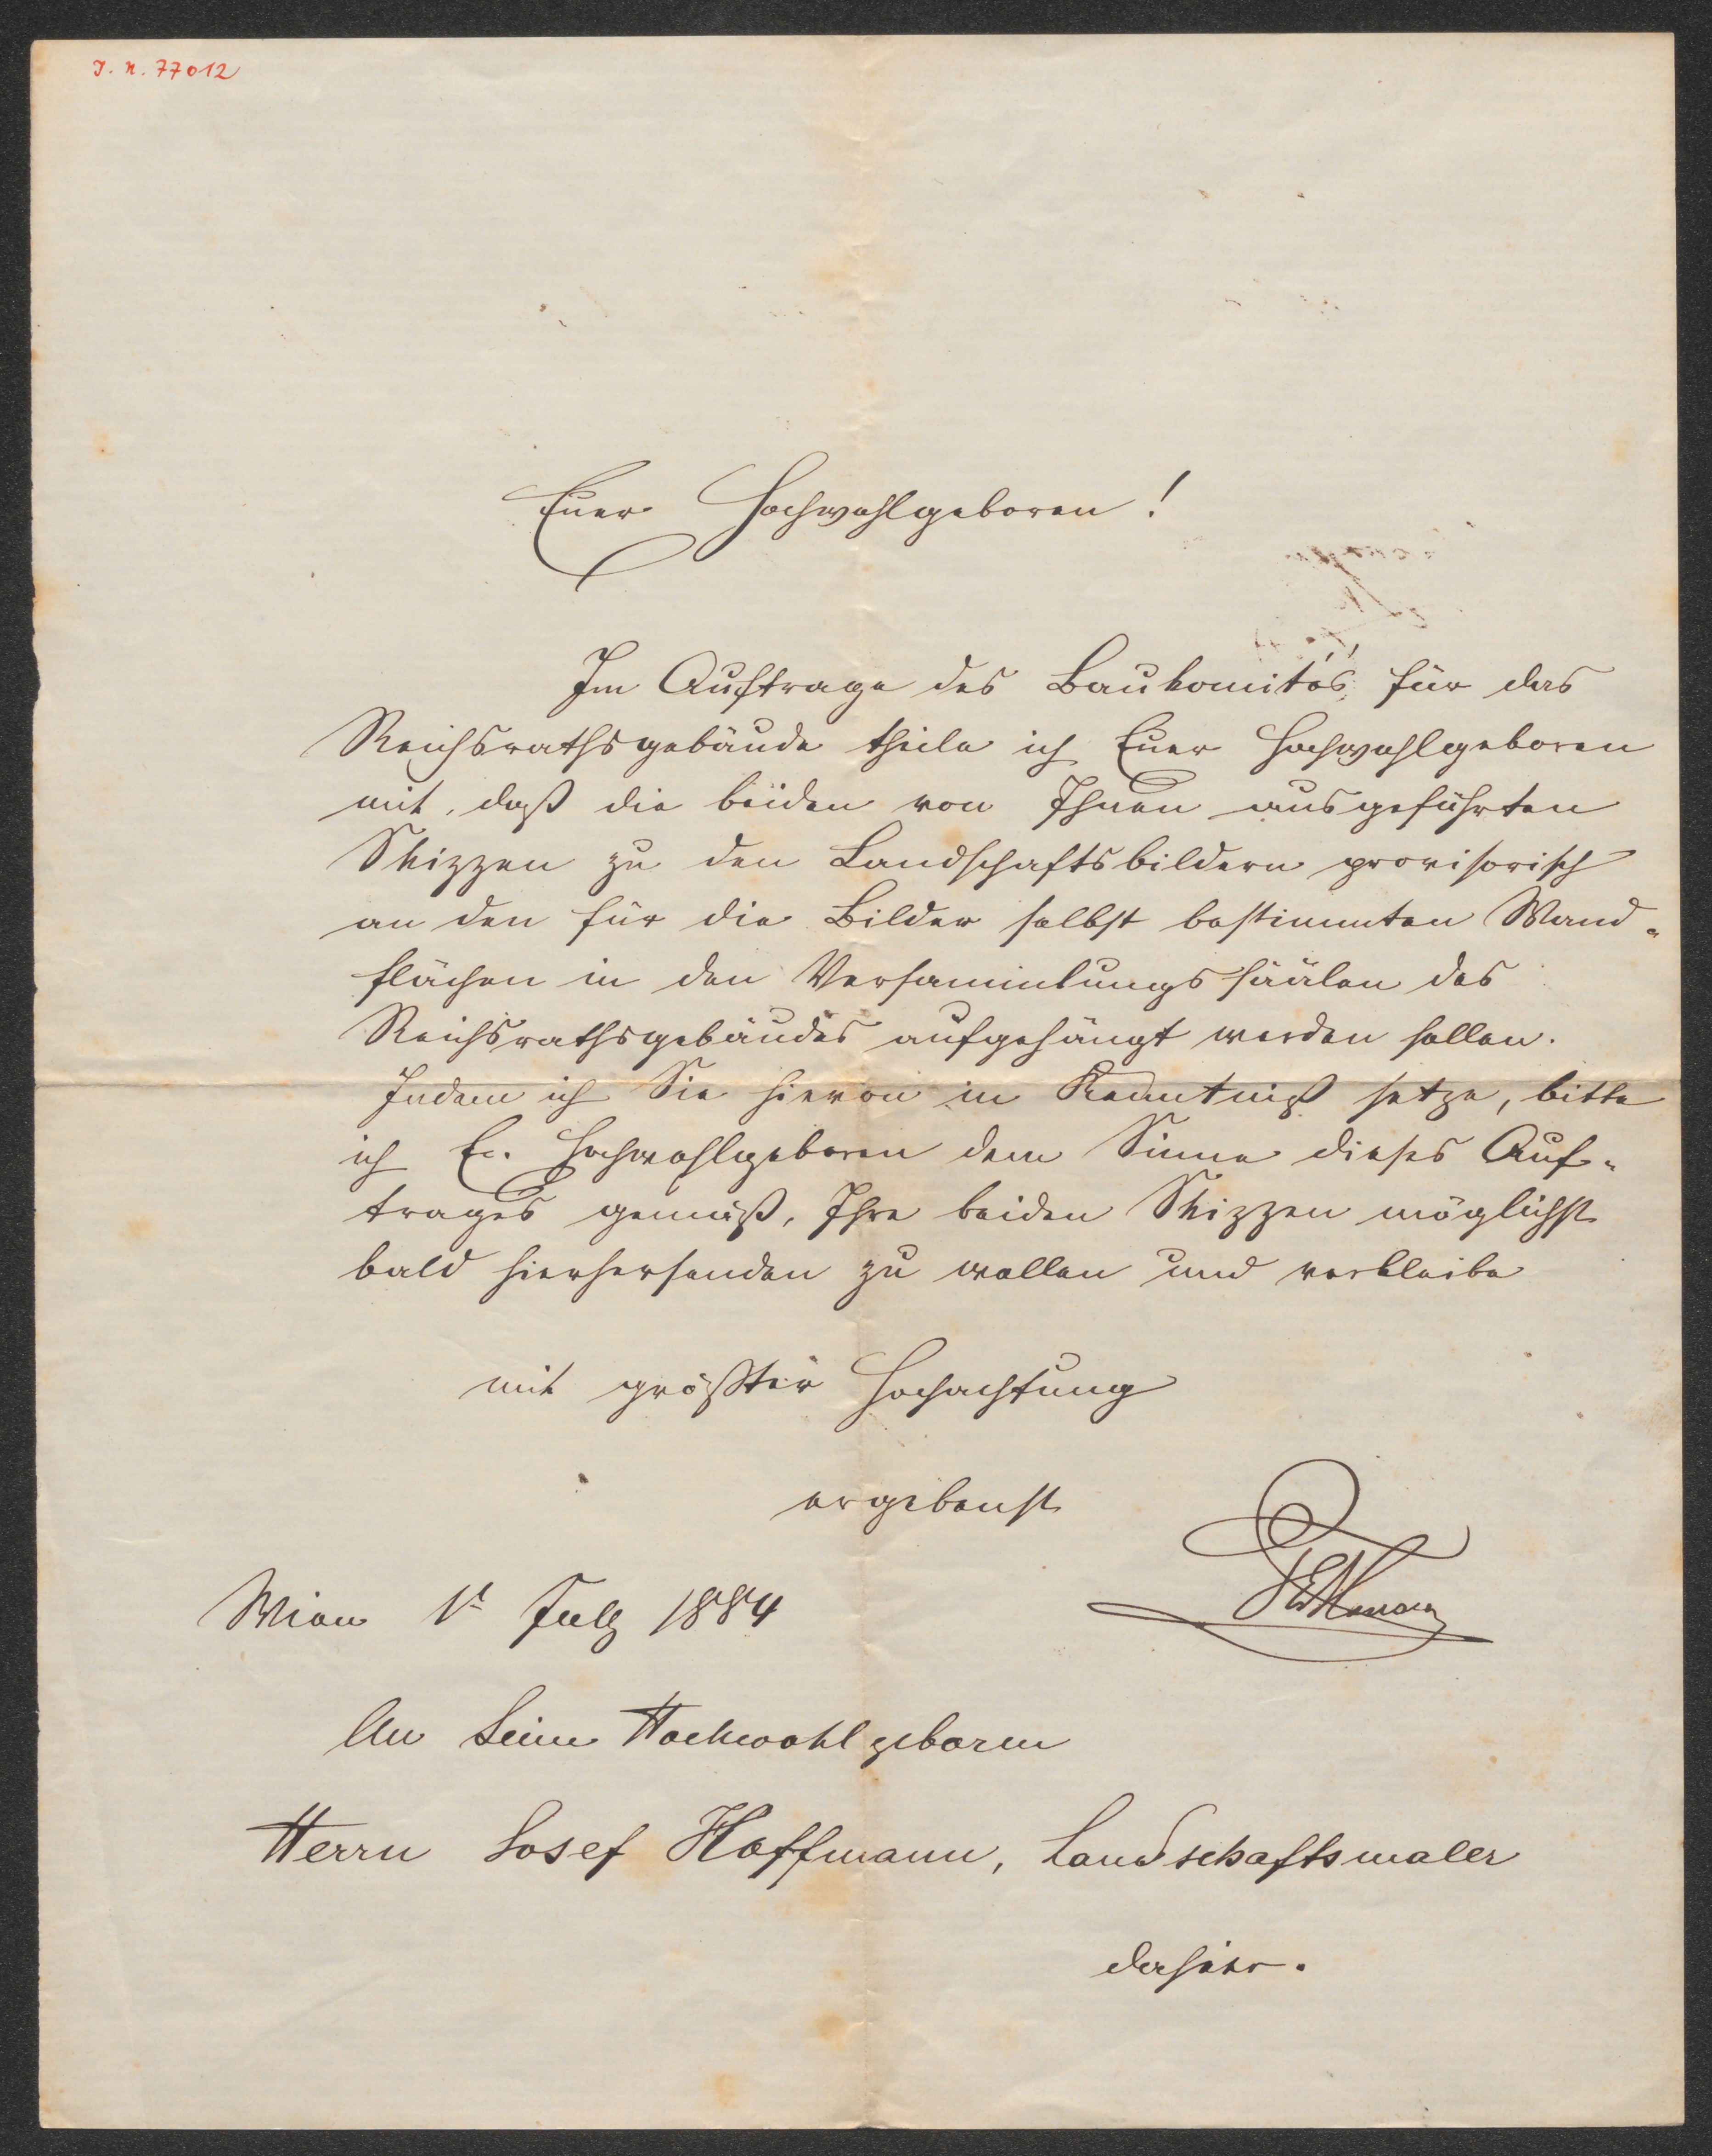 J. N. 77012
Euer Hochwohlgeboren!
Im Auftrage des Baukomités für das
Reichsrathsgebäude theile ich Euer Hochwohlgeboren
mit, daß die beiden von Ihnen ausgeführten
Skizzen zu den Landschaftsbildern provisorisch
an den für die Bilder selbst bestimmten Wand-
flächen in den Versammlungssäälen des
Reichsrathsgebäudes aufgehängt werden sollen.
Indem ich Sie hievon in Kenntniß setze, bitte
ich Ew. Hochwohlgeboren dem Sinne dieses Auf-
trages gemäß, Ihre beiden Skizzen möglichst
bald hierhersenden zu wollen und verbleibe
mit größter Hochachtung
ergebenst
Wien 1t July 1884
An Seine Hochwohlgeboren
Herrn Josef Hoffmann, Landschaftsmaler
dahier.